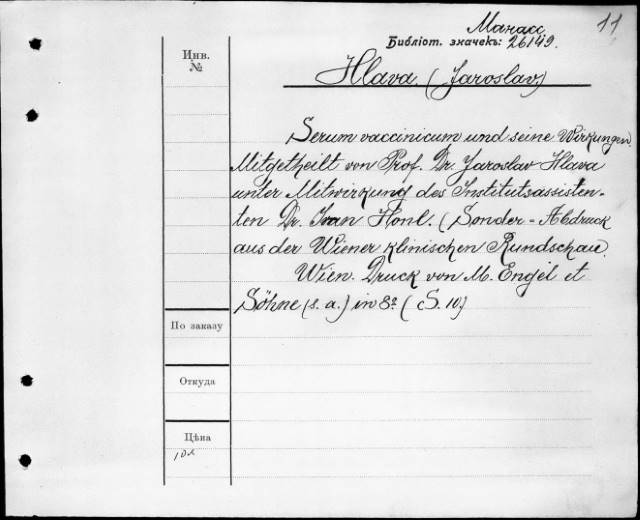 Манасс.
11
Библіот. значекъ: 26149.
Инв.
№
Hlava. (Jaroslav)
Serum vaccinicum und seine Wirkungen.
Mitgetheilt von Prof. Dr. Jaroslav Hlava
unter Mitwirkung des Institutsassisten-
ten Dr. Ivan Honl. (Sonder-Abdruck
aus der Wiener klinischen Rundschau.
Wien. Druck von M. Engel et
Söhne (s. a.) in 8º (S. 10)
По заказу
Откуда
Цѣна